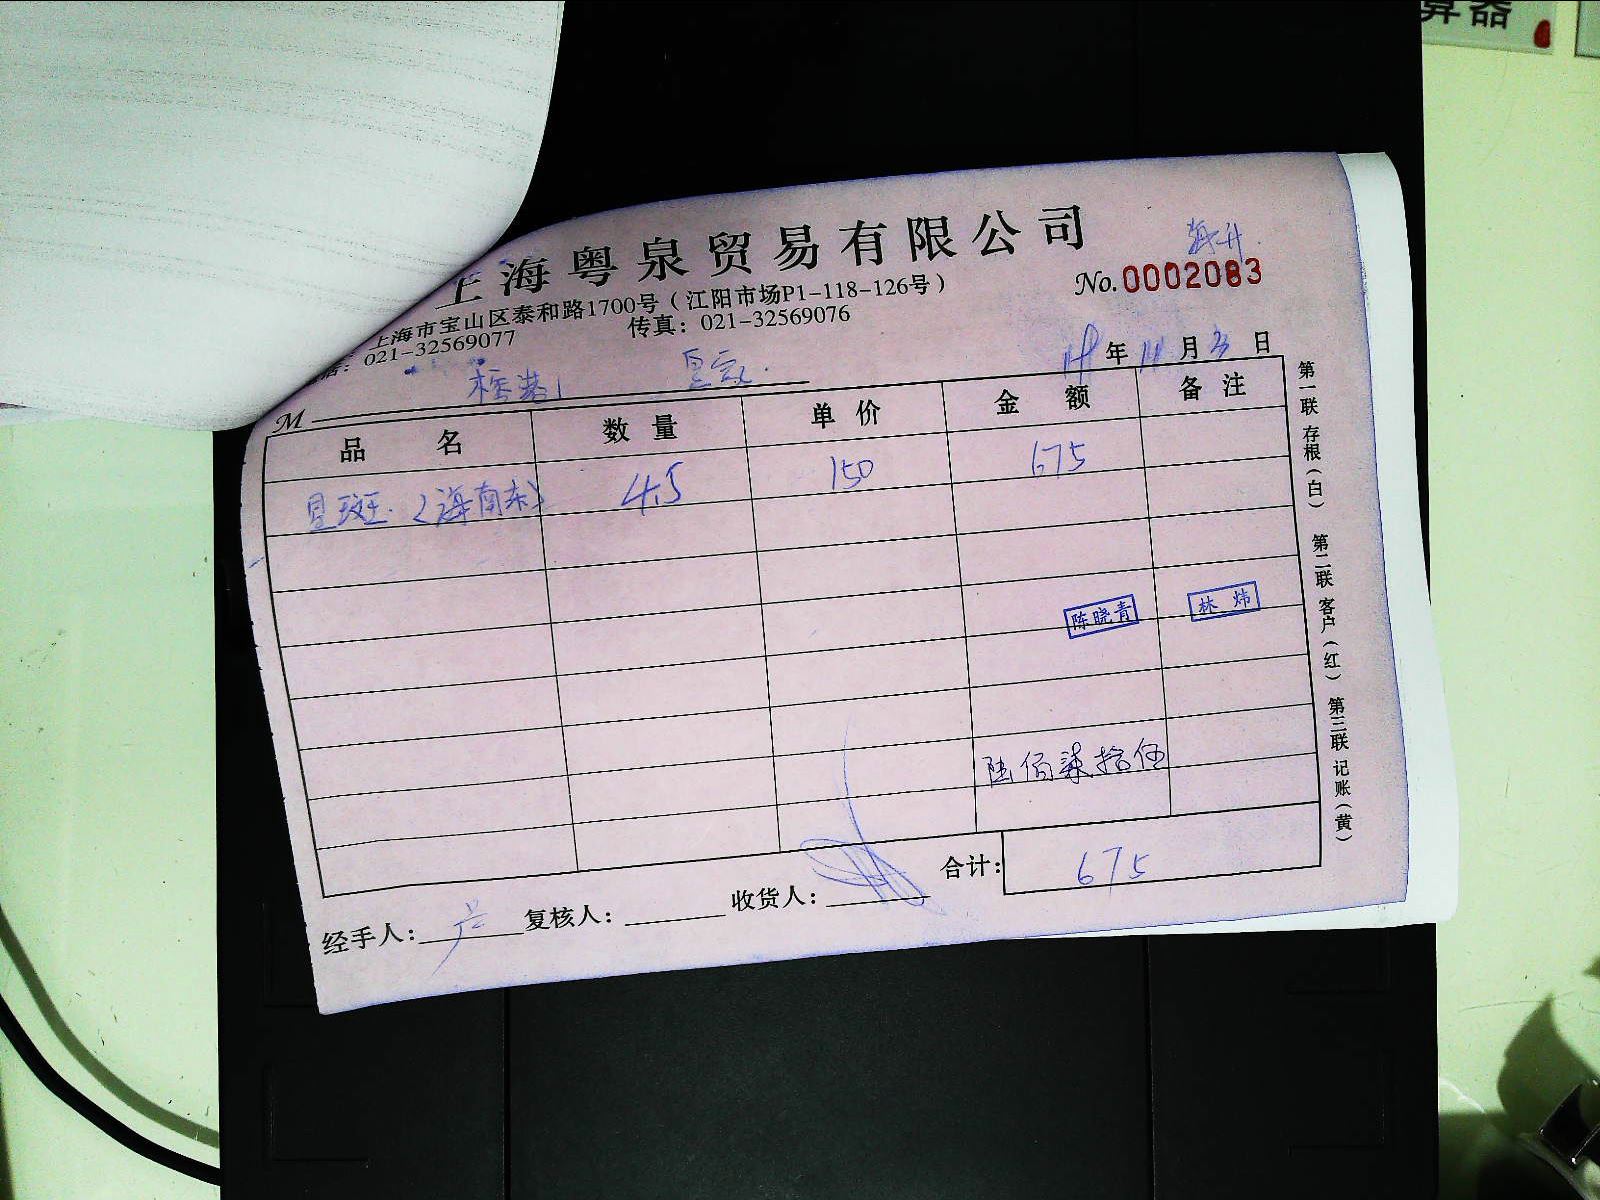 算器
上海粤泉贸易有限公司
上海市宝山区泰和路1700号(江阳市场P1-118-126号)
021-32569077 传真:021-32569076
No.0002083
年 11 月 3 日
M
品名 数量 单价 金额 备注
星斑(海南东) 4.5 150 675
陈晓青 林炜
陆佰柒拾伍
合计: 675
经手人: 复核人: 收货人:
第一联 存根(白) 第二联 客户(红) 第三联 记账(黄)